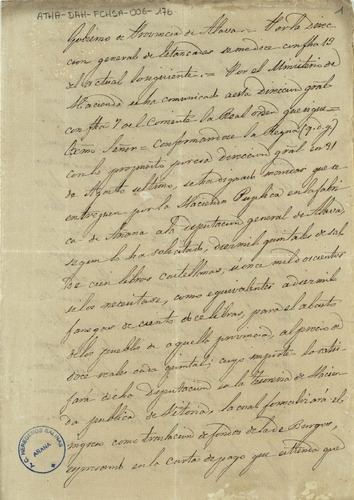 ATHA-DAH-FCHSA-006-176
1
Gobierno de Provincia de Alava = Por la Direc
cion general de Estancadas se me dice con fha 13
del actual lo siguiente. = Por el Ministerio de
Hacienda se ha comunicado a esta direccion gral
con fha 7 del Corriente la Real orden que sigue =
Excmo Señor = Conformandose la Reyna (q. g.)
con lo propuesto por esa direccion gral en 31
de Agosto ultimo, se ha dignado mandar que se
entreguen por la Hacienda Publica en la fabri
ca de Añana a la diputacion general de Alava
segun lo ha solicitado, diez mil quintales de sal
de cien libras castellanas, ú once mil doscientos
si los necesitase, como equivalentes a diez mil
fanegas de ciento doce libras, para el abasto
de los pueblos de aquella provincia, al precio de
doce reales cada quintal; cuyo importe lo satis
fará dicha diputacion en la Tesoreria de Hacien
da publica de Vitoria, la cual formalizará el
ingreso como traslacion de fondos de la de Burgos,
expresando en la carta de pago que estienda que
T.C. HEREDEROS SALINAS
AÑANA